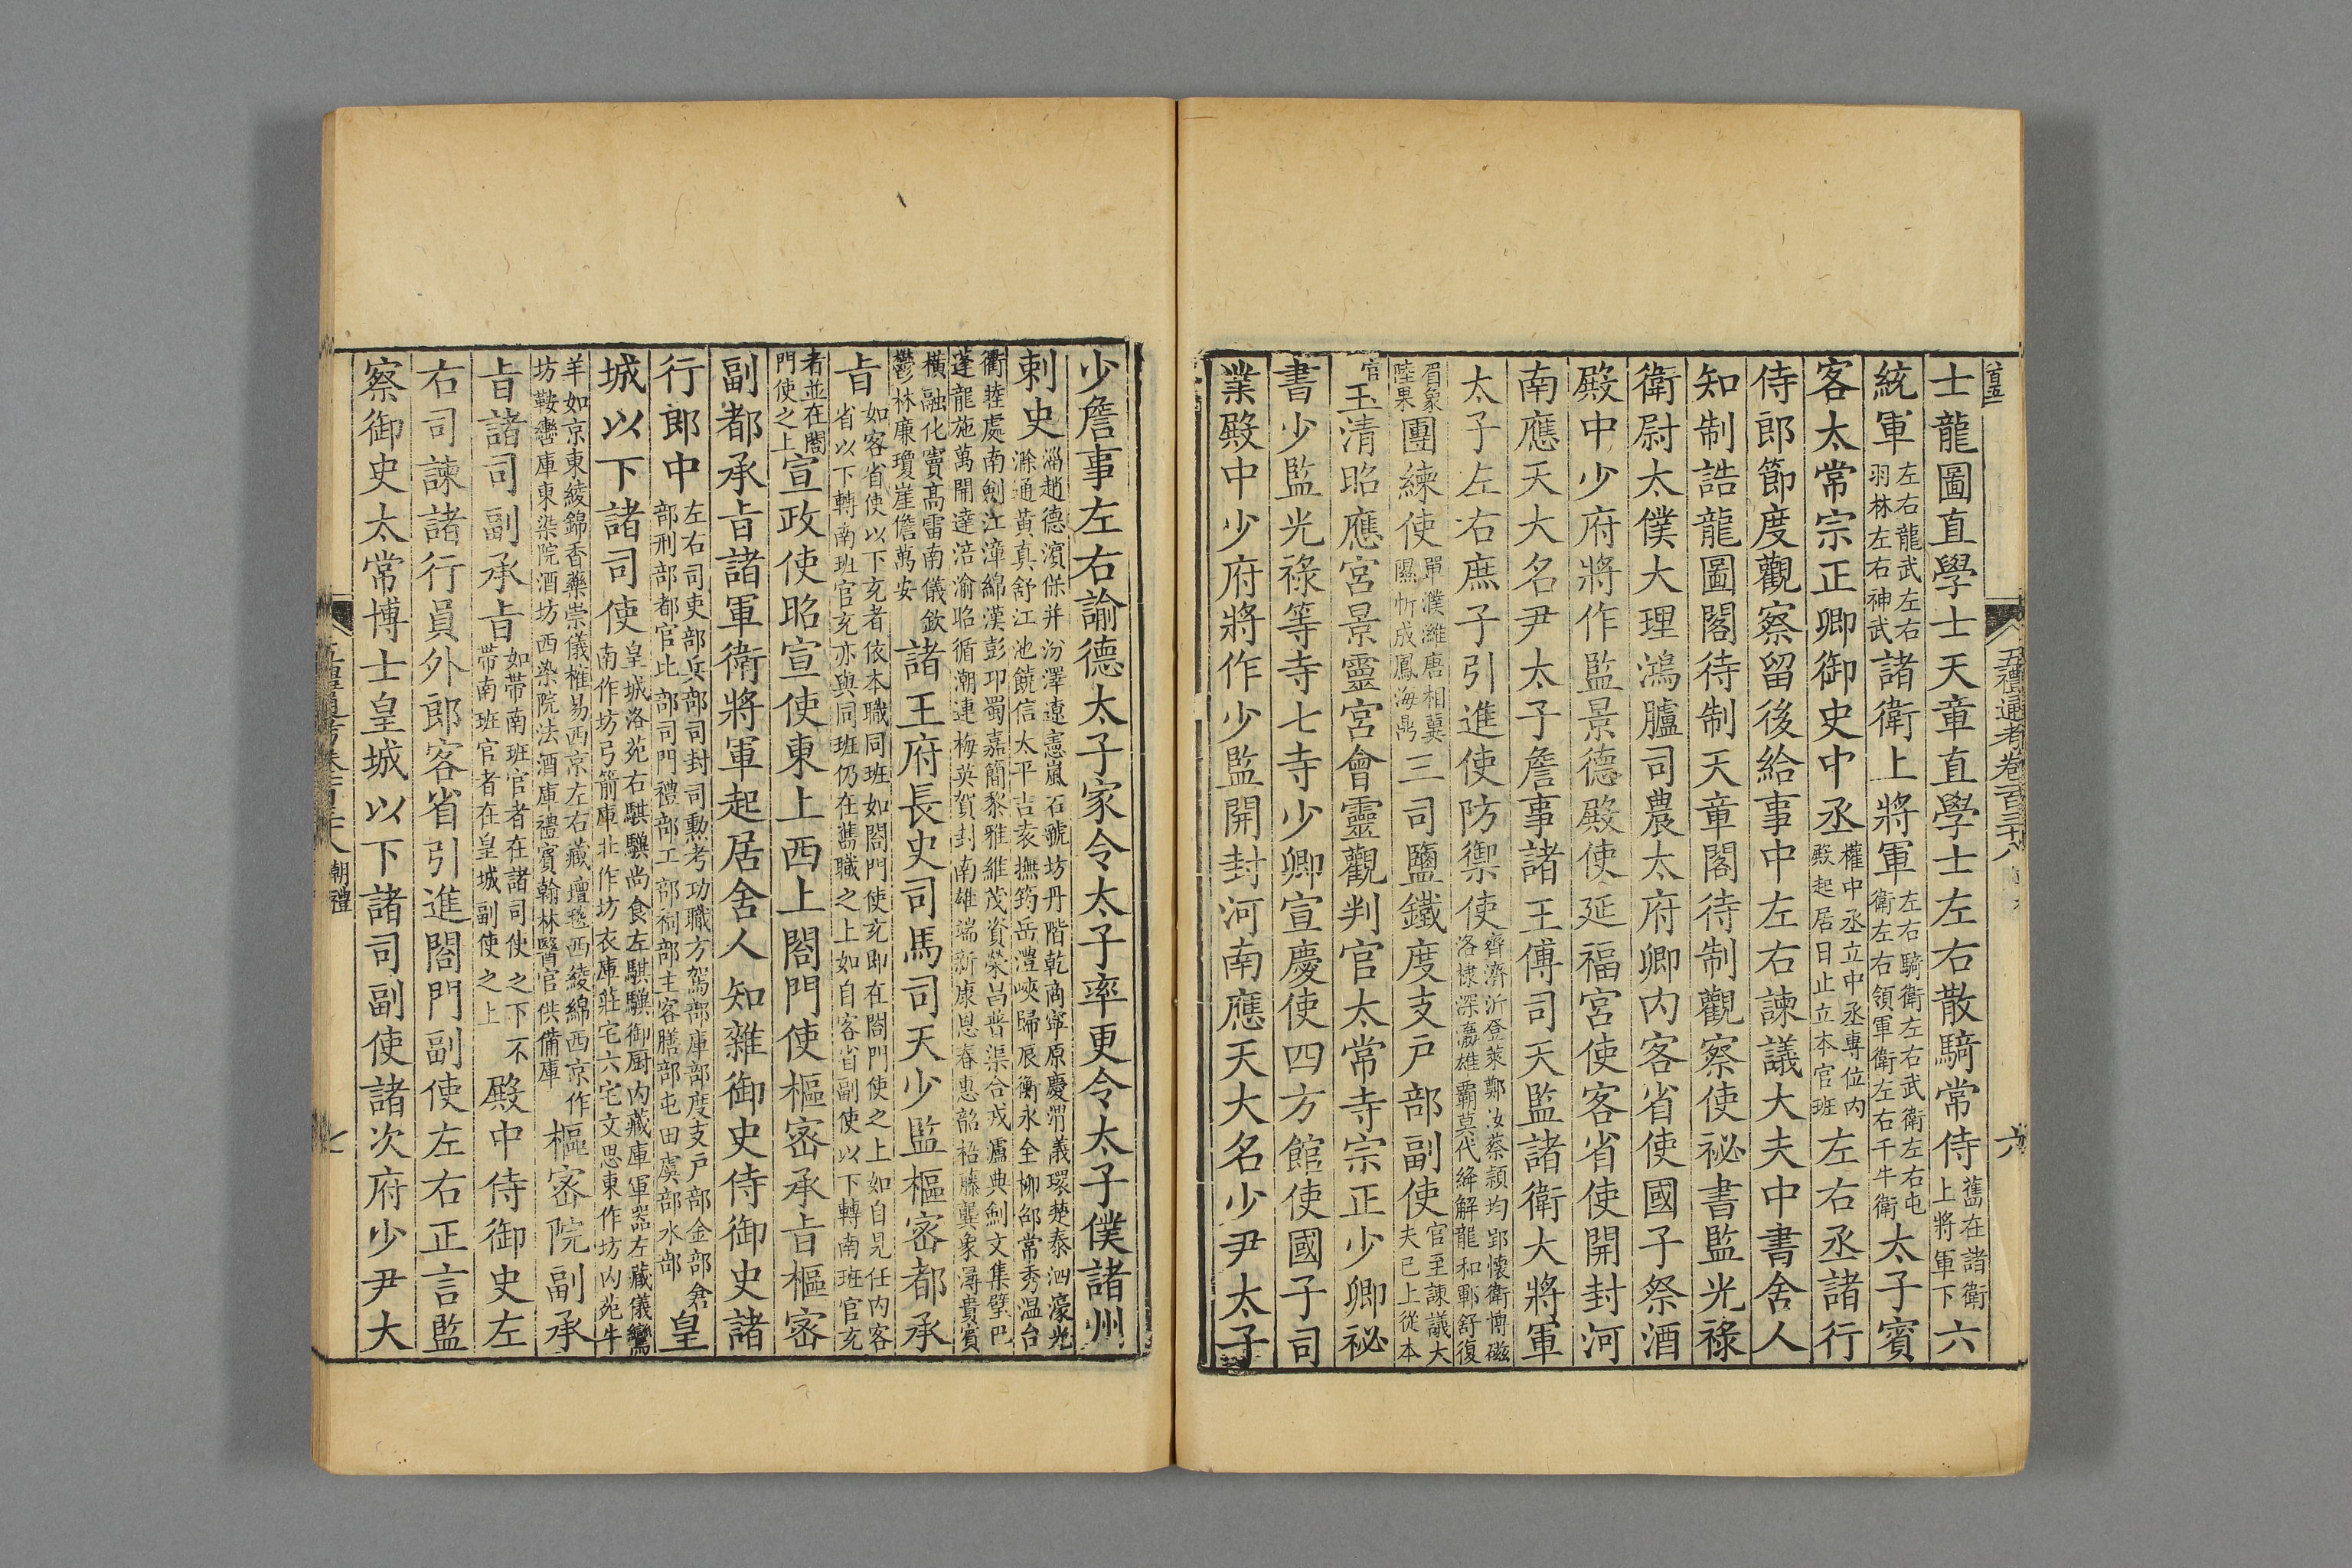 五禮通考卷一百三十八
六
士龍圖直學士天章直學士左右散騎常侍舊在諸衛上將軍下六
統軍左右龍武左右羽林左右神武諸衛上將軍左右騎衛左右武衛左右屯衛左右領軍衛左右千牛衛太子賓
客太常宗正卿御史中丞權中丞立中丞專位內殿起居日止立本官班左右丞諸行
侍郎節度觀察留後給事中左右諫議大夫中書舍人
知制誥龍圖閣待制天章閣待制觀察使祕書監光祿
衛尉太僕大理鴻臚司農太府卿內客省使國子祭酒
殿中少府將作監景德殿使延福宮使客省使開封河
南應天大名尹太子詹事諸王傅司天監諸衛大將軍
太子左右庶子引進使防禦使齊濟沂登萊鄭汝蔡潁均郢懷衛博磁洺棣深瀛雄霸莫代絳解龍和鄆舒復
眉象陸果團練使單濮濰唐相冀隰忻成鳳海鼎三司鹽鐵度支戶部副使官至諫議大夫已上從本
官玉清昭應宮景靈宮會靈觀判官太常寺宗正少卿祕
書少監光祿等寺七寺少卿宣慶使四方館使國子司
業殿中少府將作少監開封河南應天大名少尹太子
少詹事左右諭德太子家令太子率更令太子僕諸州
刺史淄趙德濱保并汾澤遼憲嵐石虢坊丹階乾商寧原慶渭義環楚泰泗濠光滁通黃真舒江池饒信太平吉袁撫筠岳澧峽歸辰衡永全柳邵常秀温台
衢睦處南劍江漳綿漢彭邛蜀嘉簡黎雅維茂資榮昌普渠合戎瀘典劍文集壁巴蓬龍施萬開達涪渝昭循潮連梅英賀封南雄端新康恩春惠韶梧藤龔象潯貴賓
橫融化竇高雷南儀欽鬱林廉瓊崖儋萬安諸王府長史司馬司天少監樞密都承
旨如客省使以下充者依本職同班如閤門使充即在閤門使之上如自見任內客省以下轉南班官充亦與同班仍在舊職之上如自客省副使以下轉南班官充
者並在閤門使之上宣政使昭宣使東上西上閤門使樞密承旨樞密
副都承旨諸軍衛將軍起居舍人知雜御史侍御史諸
行郎中左右司吏部兵部司封司勳考功職方駕部庫部度支戶部金部倉部刑部都官比部司門禮部工部祠部主客膳部屯田虞部水部皇
城以下諸司使皇城洛苑右騏驥尚食左騏驥御厨內藏庫軍器左藏儀鸞南作坊弓箭庫北作坊衣庫莊宅六宅文思東作坊內苑牛
羊如京東綾錦香藥崇儀榷易西京左右藏氊毯西綾綿西京作坊鞍轡庫東染院酒坊西染院法酒庫禮賓翰林醫官供備庫樞密院副承
旨諸司副承旨如帶南班官者在諸司使之下不帶南班官者在皇城副使之上殿中侍御史左
右司諫諸行員外郎客省引進閤門副使左右正言監
察御史太常博士皇城以下諸司副使諸次府少尹大
朝禮
七